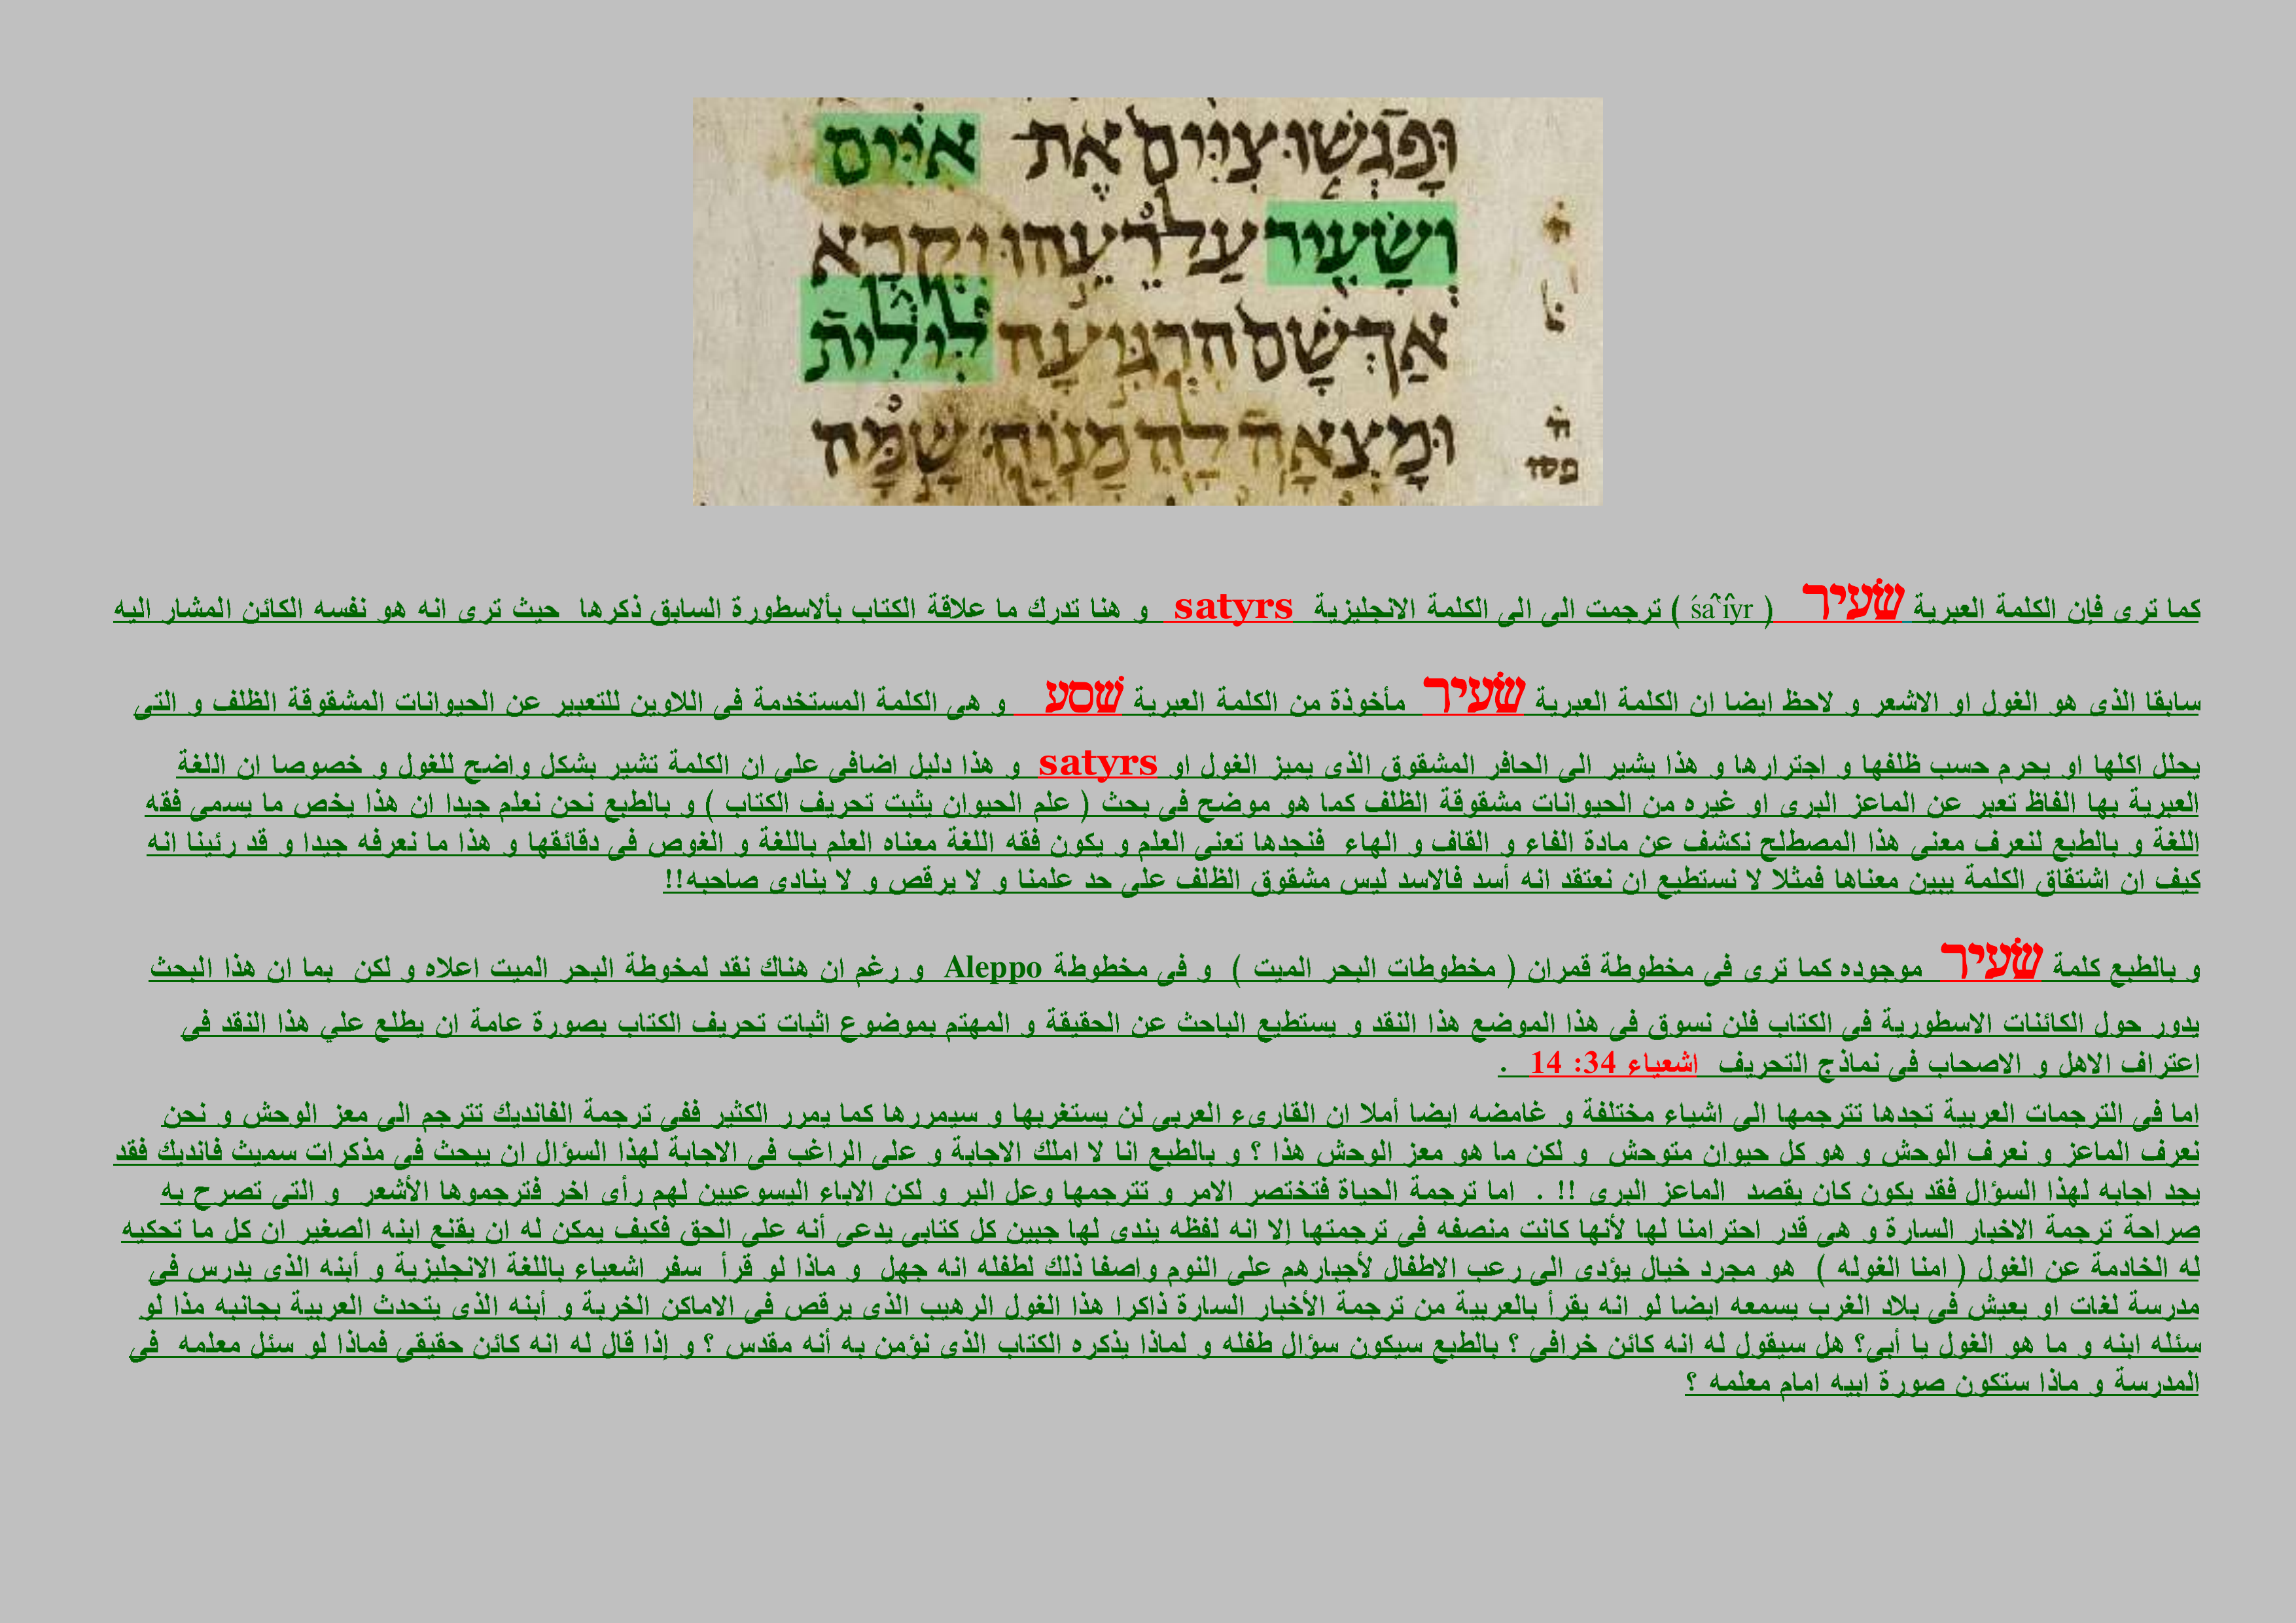 וּפָגְשׁוּ צִיִּים אֶת אִיִּים
וְשָׂעִיר עַל רֵעֵהוּ יִקְרָא
אַךְ שָׁם הִרְגִּיעָה לִּילִית
וּמָצְאָה לָהּ מָנוֹחַ שָׁמָּה
כما ترى فإن الكلمة العبرية שׂעיר ( śa‛îyr ) ترجمت الى الى الكلمة الانجليزية satyrs و هنا تدرك ما علاقة الكتاب بألاسطورة السابق ذكرها حيث ترى انه هو نفسه الكائن المشار اليه
سابقا الذى هو الغول او الاشعر و لاحظ ايضا ان الكلمة العبرية שׂעיר مأخوذة من الكلمة العبرية שׁסע و هى الكلمة المستخدمة فى اللاوين للتعبير عن الحيوانات المشقوقة الظلف و التى
يحلل اكلها او يحرم حسب ظلفها و اجترارها و هذا يشير الى الحافر المشقوق الذى يميز الغول او satyrs و هذا دليل اضافى على ان الكلمة تشير بشكل واضح للغول و خصوصا ان اللغة
العبرية بها الفاظ تعبر عن الماعز البرى او غيره من الحيوانات مشقوقة الظلف كما هو موضح فى بحث ( علم الحيوان يثبت تحريف الكتاب ) و بالطبع نحن نعلم جيدا ان هذا يخص ما يسمى فقه
اللغة و بالطبع لنعرف معنى هذا المصطلح نكشف عن مادة الفاء و القاف و الهاء فنجدها تعنى العلم و يكون فقه اللغة معناه العلم باللغة و الغوص فى دقائقها و هذا ما نعرفه جيدا و قد رئينا انه
كيف ان اشتقاق الكلمة يبين معناها فمثلا لا نستطيع ان نعتقد انه أسد فالاسد ليس مشقوق الظلف على حد علمنا و لا يرقص و لا ينادى صاحبه!!
و بالطبع كلمة שׂעיר موجوده كما ترى فى مخطوطة قمران ( مخطوطات البحر الميت ) و فى مخطوطة Aleppo و رغم ان هناك نقد لمخوطة البحر الميت اعلاه و لكن بما ان هذا البحث
يدور حول الكائنات الاسطورية فى الكتاب فلن نسوق فى هذا الموضع هذا النقد و يستطيع الباحث عن الحقيقة و المهتم بموضوع اثبات تحريف الكتاب بصورة عامة ان يطلع علي هذا النقد فى
اعتراف الاهل و الاصحاب فى نماذج التحريف اشعياء 34: 14 .
اما فى الترجمات العربية تجدها تترجمها الى اشياء مختلفة و غامضه ايضا أملا ان القارىء العربى لن يستغربها و سيمررها كما يمرر الكثير ففى ترجمة الفانديك تترجم الى معز الوحش و نحن
نعرف الماعز و نعرف الوحش و هو كل حيوان متوحش و لكن ما هو معز الوحش هذا ؟ و بالطبع انا لا املك الاجابة و على الراغب فى الاجابة لهذا السؤال ان يبحث فى مذكرات سميث فانديك فقد
يجد اجابه لهذا السؤال فقد يكون كان يقصد الماعز البرى !! . اما ترجمة الحياة فتختصر الامر و تترجمها وعل البر و لكن الاباء اليسوعيين لهم رأى اخر فترجموها الأشعر و التى تصرح به
صراحة ترجمة الاخبار السارة و هى قدر احترامنا لها لأنها كانت منصفه فى ترجمتها إلا انه لفظه يندى لها جبين كل كتابى يدعى أنه على الحق فكيف يمكن له ان يقنع ابنه الصغير ان كل ما تحكيه
له الخادمة عن الغول ( امنا الغوله ) هو مجرد خيال يؤدى الى رعب الاطفال لأجبارهم على النوم واصفا ذلك لطفله انه جهل و ماذا لو قرأ سفر اشعياء باللغة الانجليزية و أبنه الذى يدرس فى
مدرسة لغات او يعيش فى بلاد الغرب يسمعه ايضا لو انه يقرأ بالعربية من ترجمة الأخبار السارة ذاكرا هذا الغول الرهيب الذى يرقص فى الاماكن الخربة و أبنه الذى يتحدث العربية بجانبه مذا لو
سئله ابنه و ما هو الغول يا أبى؟ هل سيقول له انه كائن خرافى ؟ بالطبع سيكون سؤال طفله و لماذا يذكره الكتاب الذى نؤمن به أنه مقدس ؟ و إذا قال له انه كائن حقيقى فماذا لو سئل معلمه فى
المدرسة و ماذا ستكون صورة ابيه امام معلمه ؟